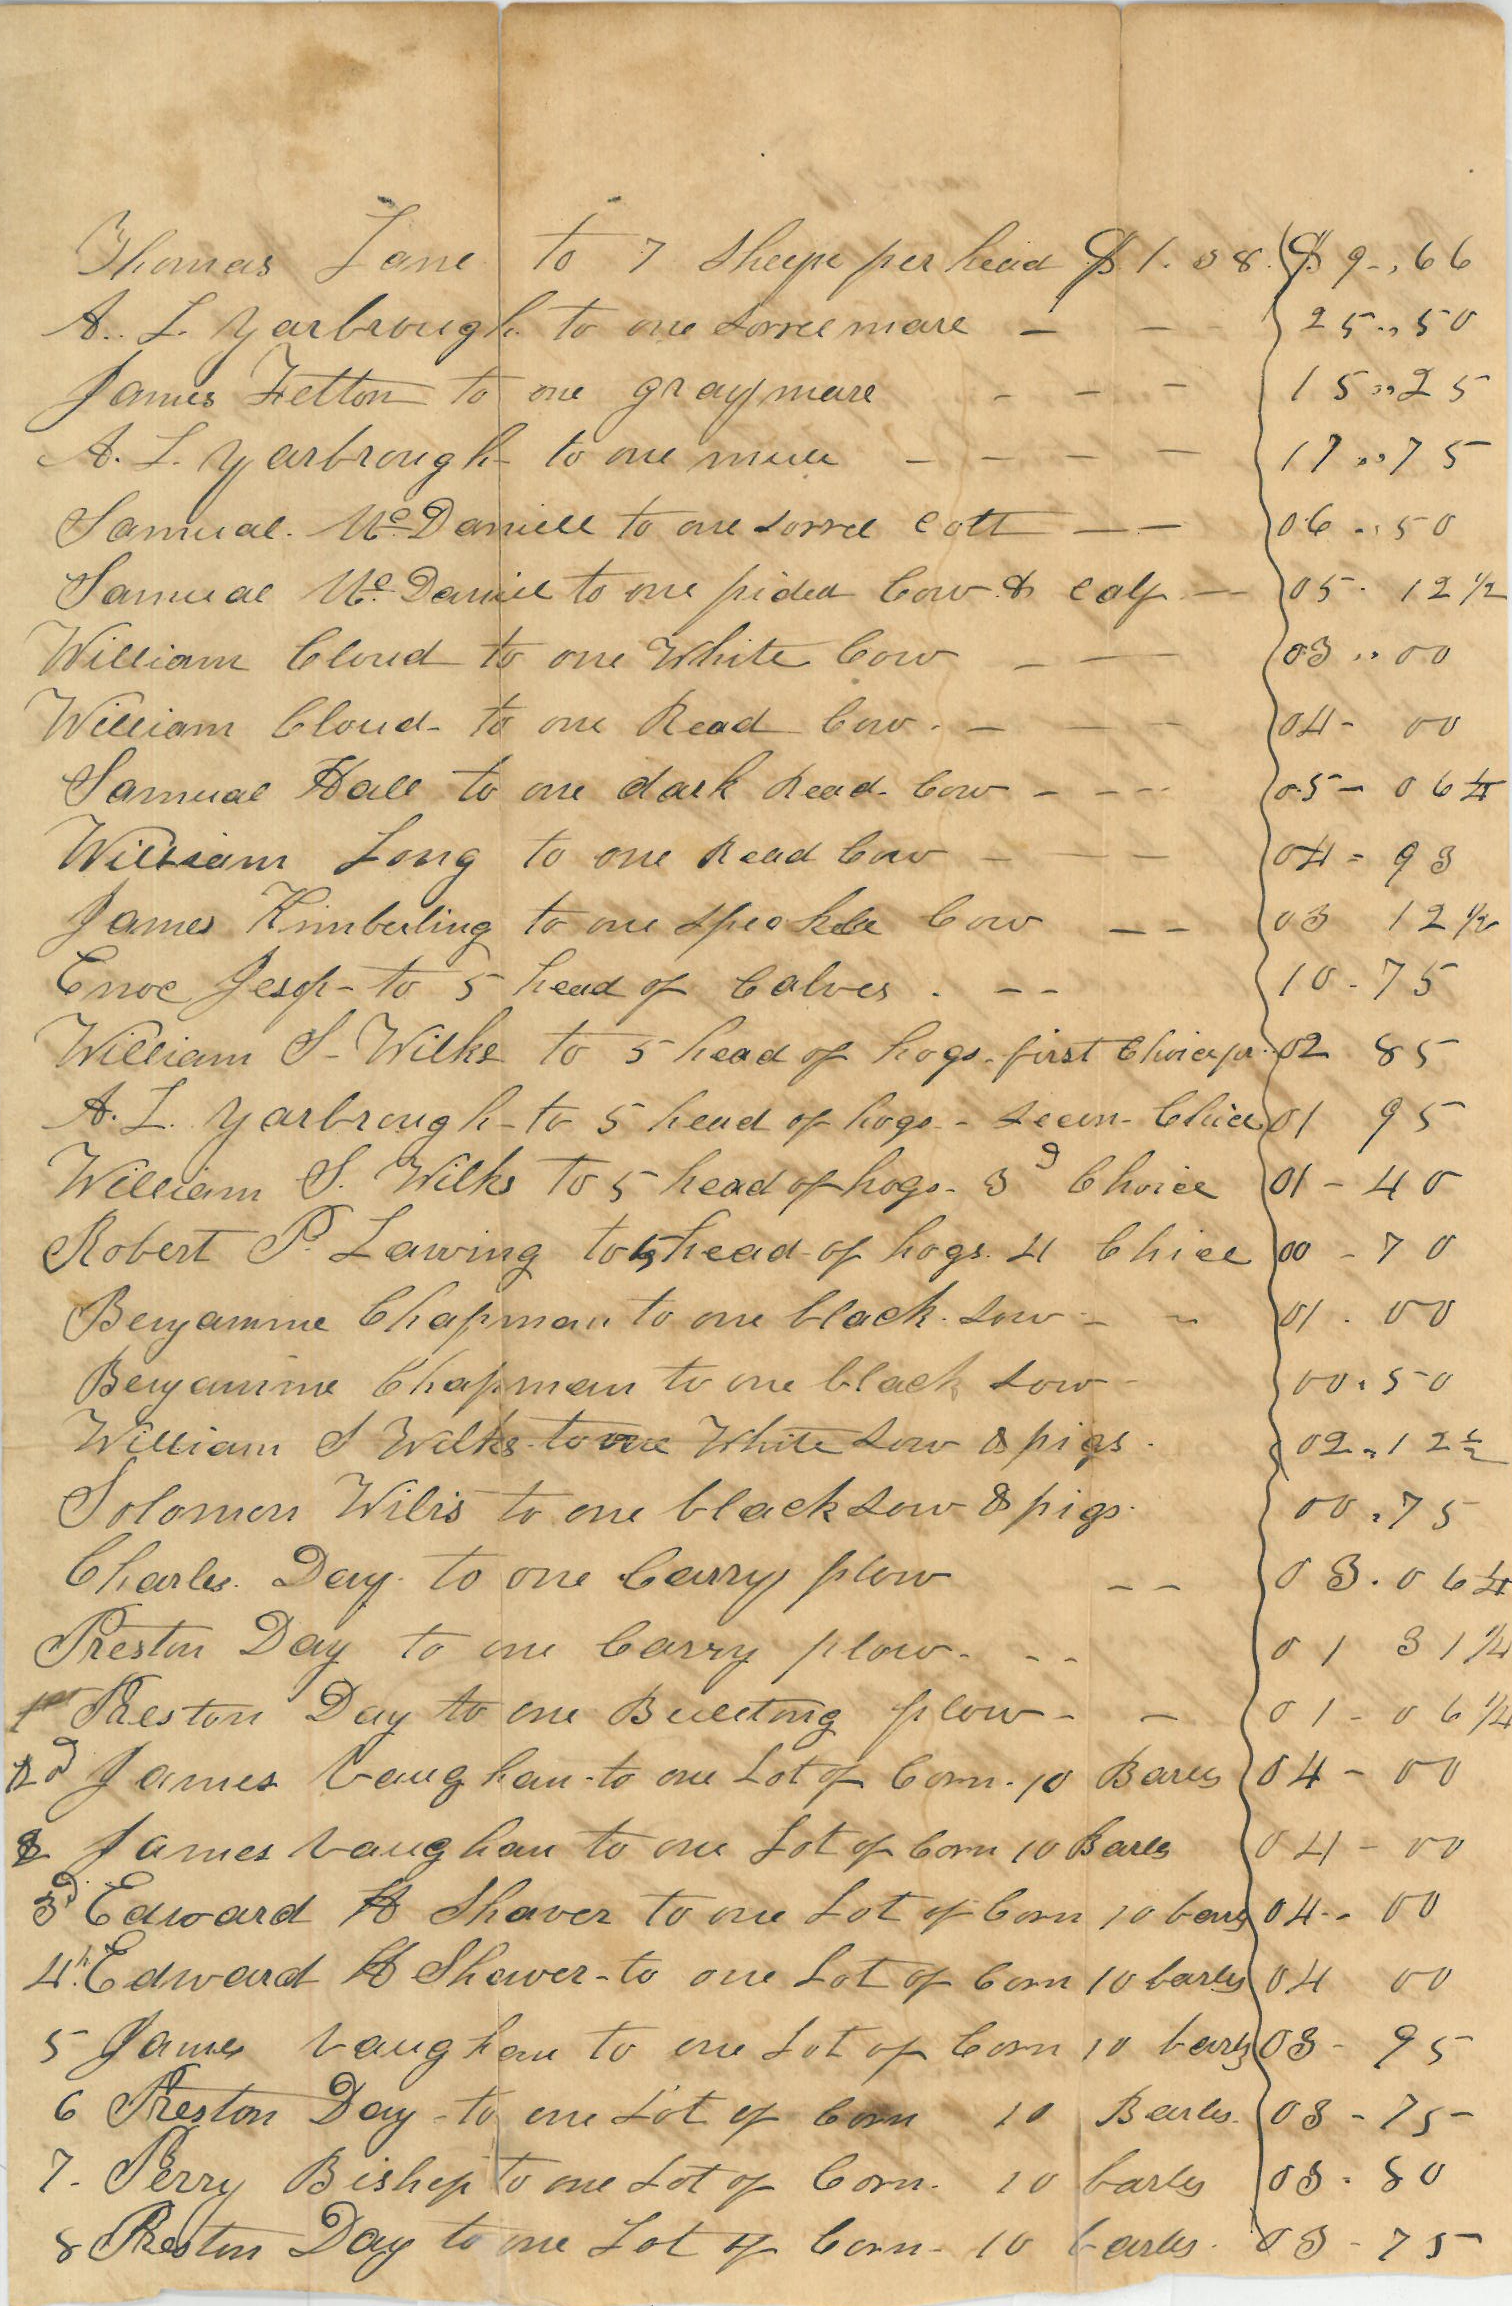 Thomas Lane to 7 Sheepe per head $1.38. $9-,66
A. L. Yarbrough to one Sorrel mare - - 25.,50
James Felton to one gray mare - - - 15,,25
A. L. Yarbrough to one mule - - - - 17,,75
Samual. McDaniell to one Sorrel Colt - - 06.,50
Samual McDaniel to one pided Cow & Calf - 05. 12 1/2
William Cloud to one White Cow - - 03,,00
William Cloud - to one Read Cow. - - - 04- 00
Samual Hall to one dark Read Cow - - - 05- 06 1/4
William Long to one Read Cow - - - 04= 93
James Kimberling to one Speckle Cow - - 03 12 1/2
Enoc Jesop - to 5 head of Calves . - - 10-75
William S- Wilks to 5 head of hogs - first Choice pr. 02 85
A. L. Yarbrough - to 5 head of hogs - Secon - Choice 01 95
William S. Wilks to 5 head of hogs - 3d Choice 01-40
Robert P. Lawing to 5 head of hogs. 4 Chice 00-70
Benjamine Chapman to one black Sow - - 01.00
Benjamine Chapman to one black Sow - 00.50
William S Wilks to one White Sow & pigs. 02.,12 1/2
Solomon Wilis to one black Sow & pigs. 00.75
Charles. Day. to one Carry plow - - 03.06 1/4
Preston Day to one Carry plow. - - 01 31 1/4
1st Preston Day to one plow - - 01-06 1/4
2d James Vaughan - to one Lot of Corn - 10 Barls 04-00
2 James Vaughan to one Lot of Corn 10 Barls 04-00
3d Edward H Shaver to one Lot of Corn 10 barls 04-- 00
4th. Edward H Shaver - to one Lot of Corn 10 barls 04 00
5 James Vaughan to one Lot of Corn 10 barls 03- 95
6 Preston Day - to one Lot of Corn 10 Barls. 03-75-
7- Perry Bishop to one Lot of Corn. 10 barls 03.80
8 Preston Day to one Lot of Corn - 10 barls. 03-75